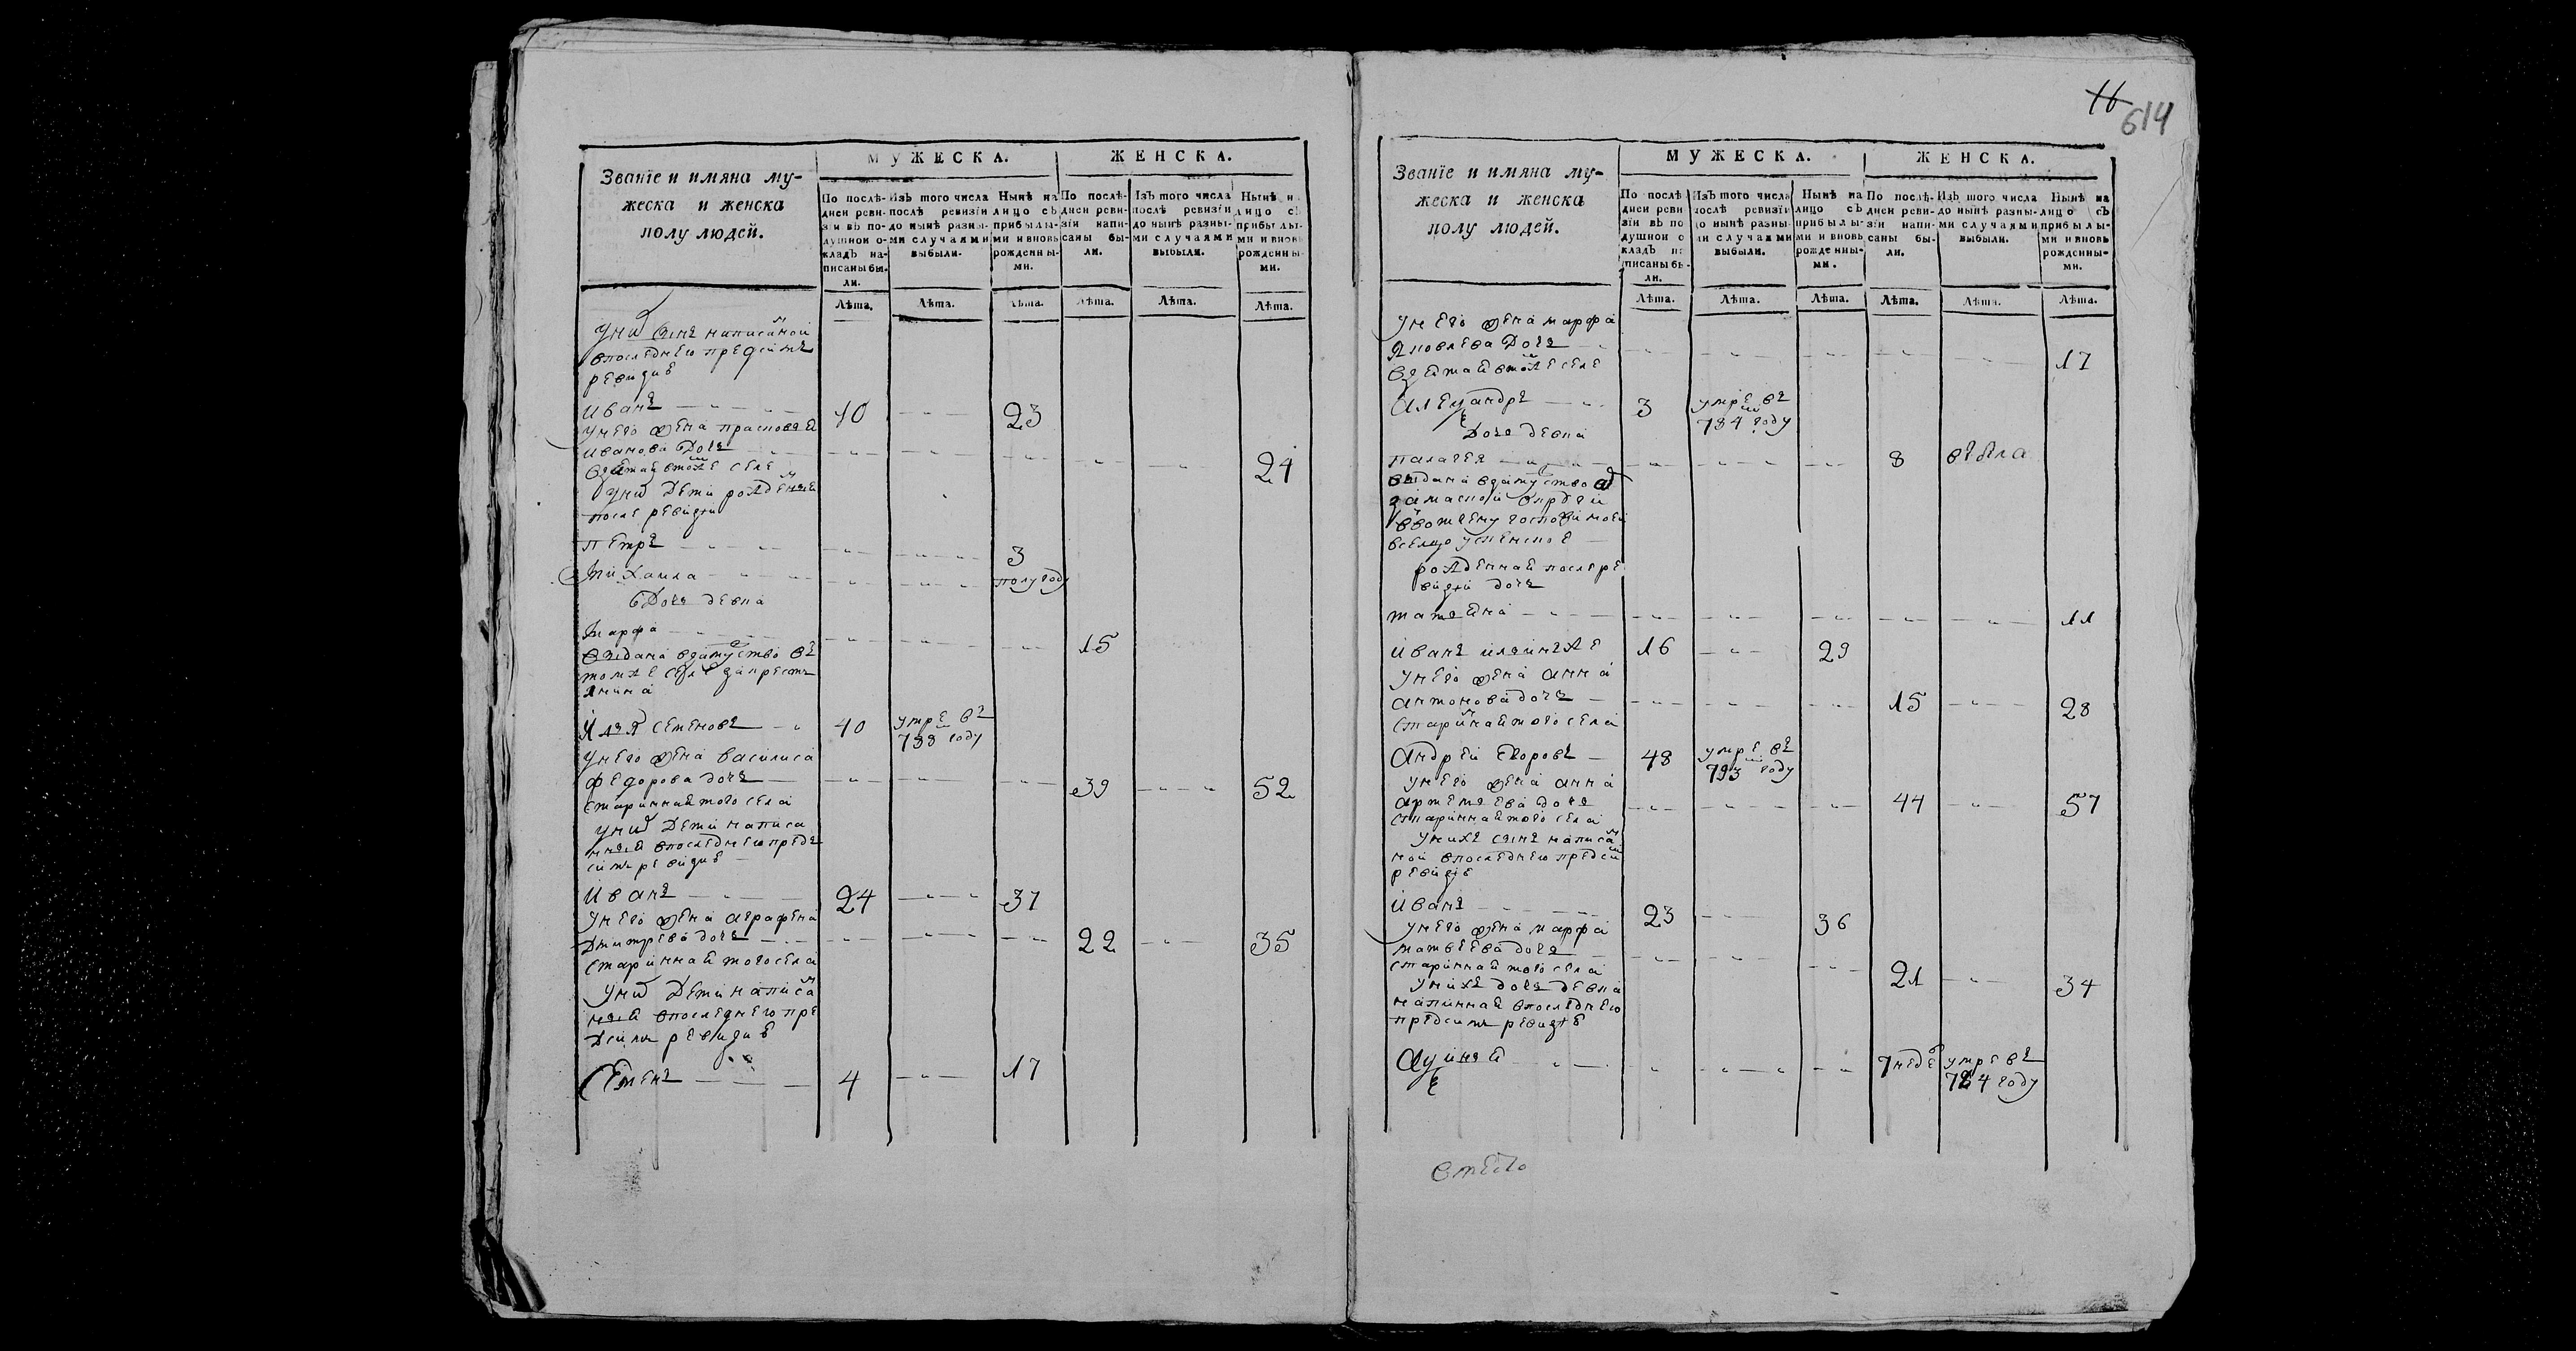 Званїе и имяна му-
жеска и женска
полу людей.
МУЖЕСКА.
ЖЕНСКА.
По послѣ-
дней реви-
зїи въ по-
душной о-
кладъ на-
писаны бы-
ли.
Изъ того числа
послѣ ревизїи
до нынѣ разны-
ми случаями
выбыли.
Нынѣ на
лицо съ
прибылы-
ми и вновь
рожденны-
ми.
По послѣ-
дней реви-
зїи напи-
саны бы-
ли.
Изъ того числа
послѣ ревизїи
до нынѣ разны-
ми случаями
выбыли.
Нынѣ н
лицо съ
прибылы-
ми и вновь
рожденны
ми.
Лѣта. Лѣта. Лѣта. Лѣта. Лѣта. Лѣта.
у них сынъ написанной
впоследнею пред сим
ревизию
иванъ 10 23
у него жена прасковья
иванова дочь 24
взятая втом же селе
у них дети рожденные
после ревизии
петръ 3
михаила полугоду
дочь девка
марфа 15
выдана взамужство въ
том же селе за кресть
янина
илья семеновъ 40 умре въ
788 году
у него жена василиса
федорова дочь 39 52
старинная того села
у них дети написа
нныя впоследнею пред
сим ревизию
иванъ 24 37
у него жена аграфена
дмитрева дочь 22 35
старинная того села
у них дети написан
ныя впоследнею пре
дсим ревизию
семенъ 4 17
16
614
Званїе и имяна му-
жеска и женска
полу людей.
МУЖЕСКА.
ЖЕНСКА.
По послѣ
дней реви
зїи въ по
душной о
кладъ на
писаны бы-
ли.
Изъ того числа
послѣ ревизїи
до нынѣ разны-
ми случаями
выбыли.
Нынѣ на
лицо съ
прибылы-
ми и вновь
рожденны-
ми.
По послѣ-
дней реви-
зїи напи-
саны бы-
ли.
Изъ того числа
до нынѣ разны-
ми случаями
выбыли.
Нынѣ на
лицо съ
прибылы-
ми и вновь
рожденны-
ми.
Лѣта. Лѣта. Лѣта. Лѣта. Лѣта. Лѣта.
у него жена марфа
яковлева дочь 17
взятая втом же селе
александръ 3 умре въ
784 году
дочь девка
палагея 8
выдана взамужство
госпожи моей
в село успенское
рожденная после ре
визии дочь
татьяна 11
иванъ ильин же 16 29
у него жена анна
антонова дочь 15 28
старинная того села
андрей егоровъ 48 умре въ
793 году
у него жена анна
артемьева дочь 44 57
старинная того села
у них сынъ написан
ной впоследнею пред сим
ревизию
иванъ 23 36
у него жена марфа
матвеева дочь
старинная того села 21 34
у них дочь девка
впоследнею
пред сим ревизию
7 неде умре въ
784 году